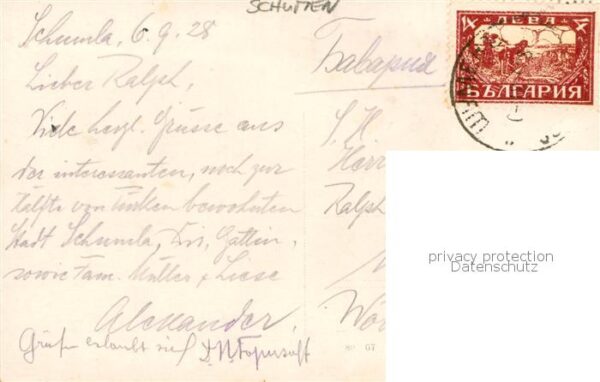 SCHUMEN
Schumla, 6.9.28
Lieber Ralph,
Viele herzl. Grüsse aus
der interessanten, noch zur
Hälfte von Türken bewohnten
Stadt Schumla, Gattin,
sowie Fam. Müller + Liese
Alexander
erlaubt sich
Бавария
1 ЛЕВА
БЪЛГАРИЯ
S. H.
Herr
Ralph
67
privacy protection
Datenschutz